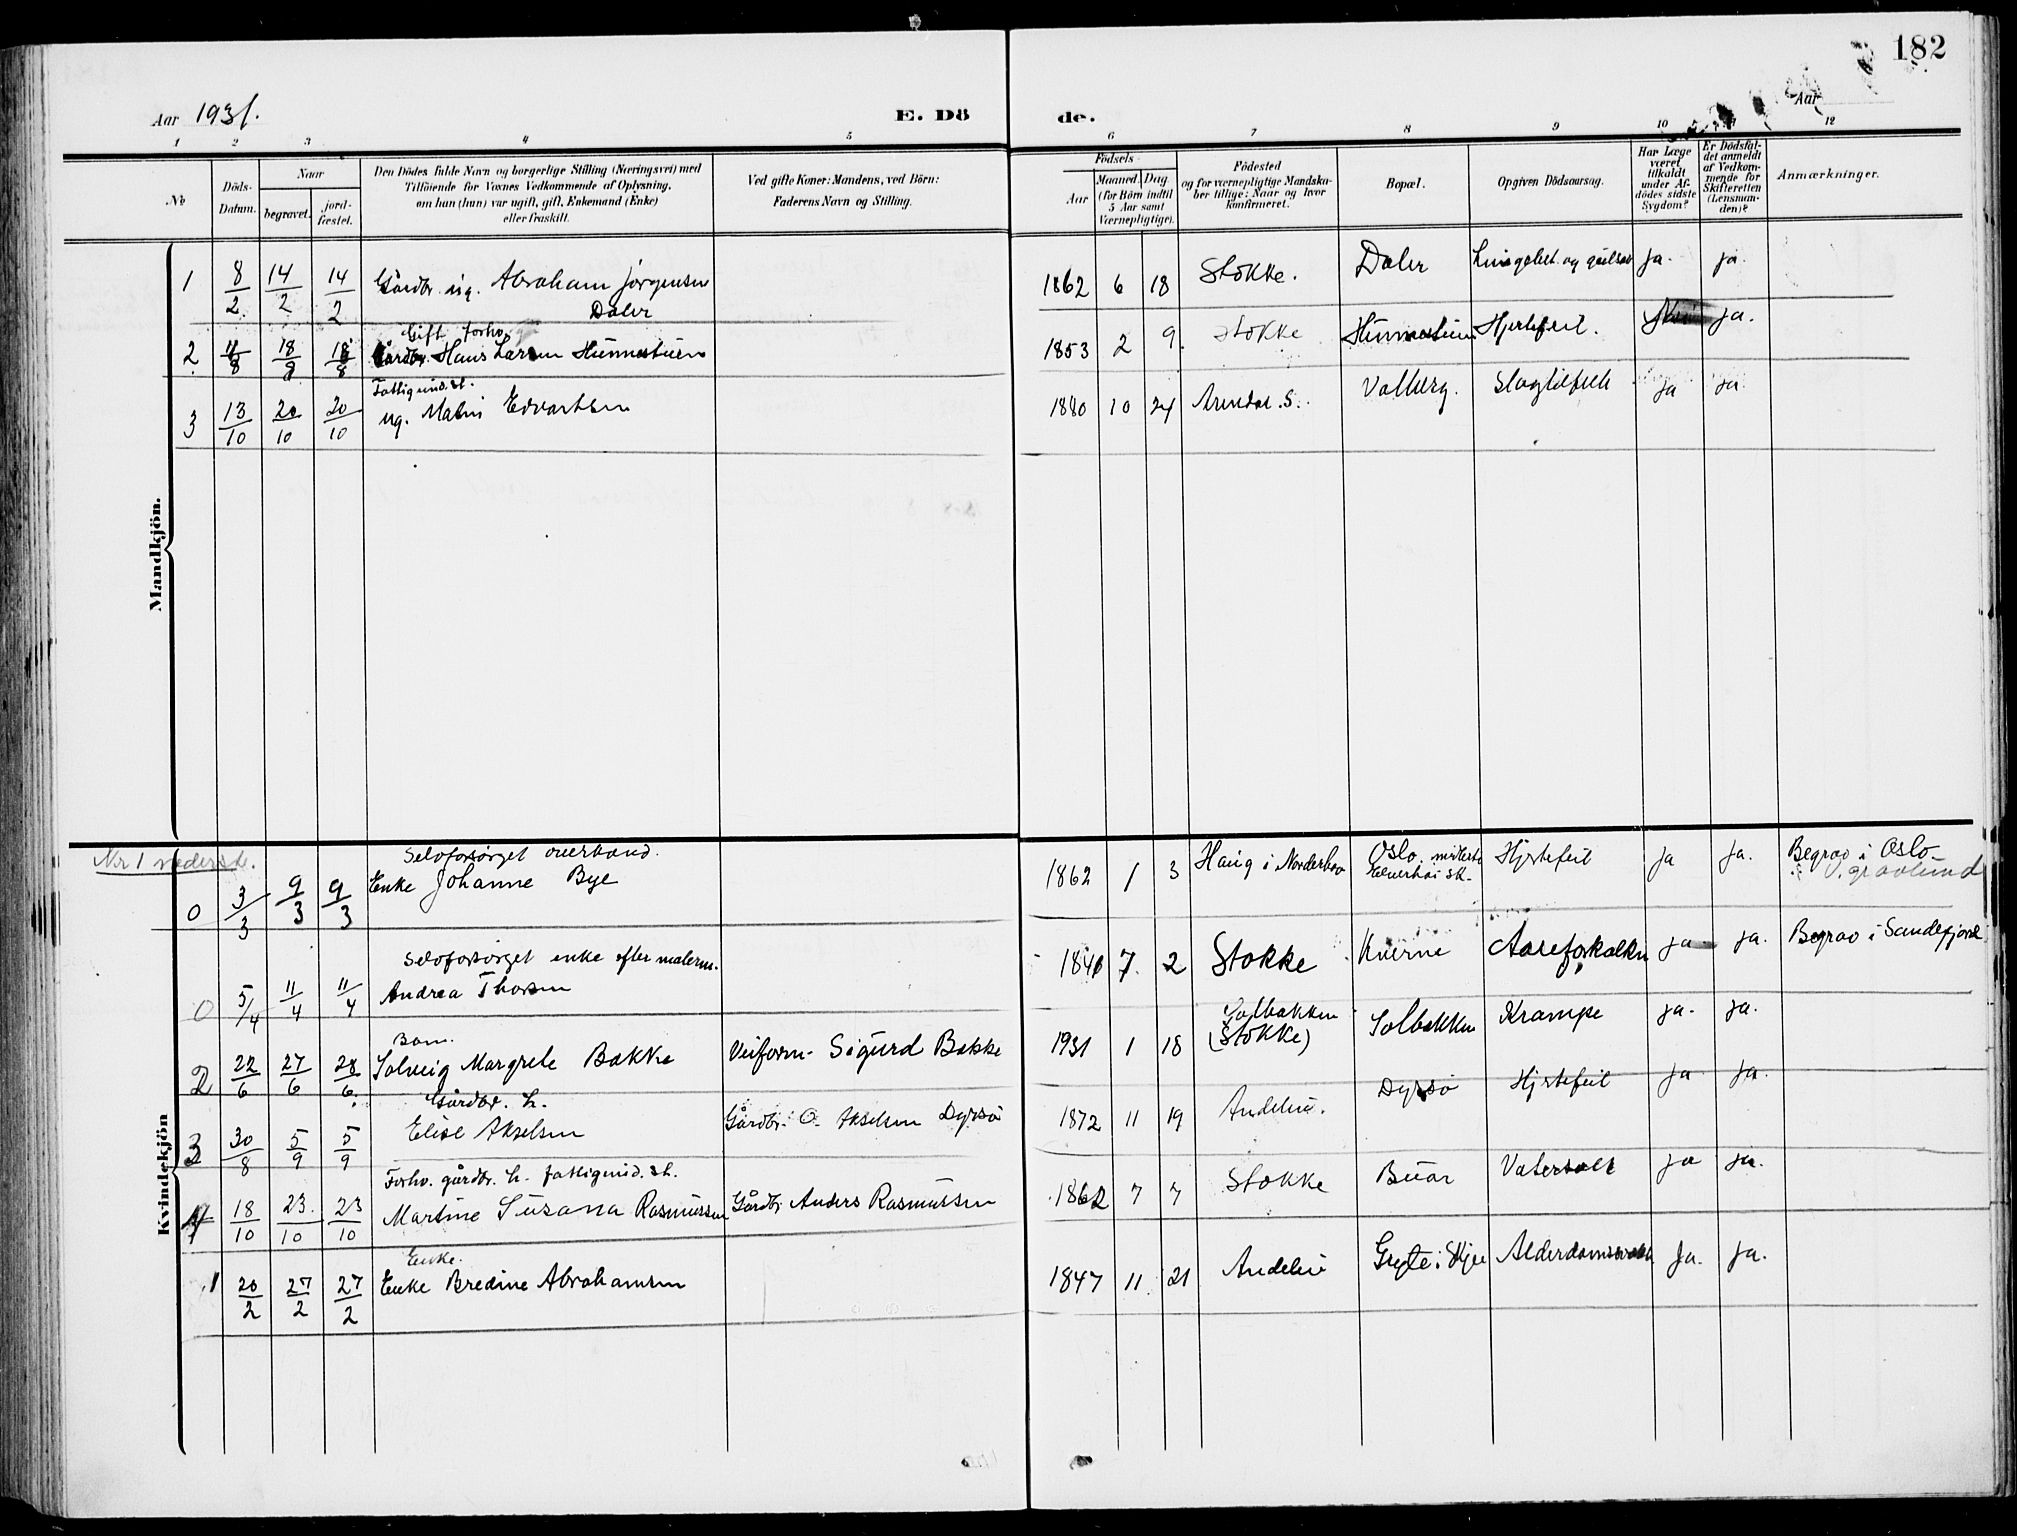 182
Aar 1931.
E. Dö
de.
Aar
1 2 3 4 5
6 7 8 9 10 11 12
No
Döds-
Datum.
Naar
begravet.
jord-
fæstet.
Den Dödes fulde Navn og borgerlige Stilling (Næringsvei) med
Tilföiende for Voxnes Vedkommende af Oplysning,
om han (hun) var ugift, gift, Enkemand (Enke)
eller fraskilt.
Ved gifte Koner: Mandens, ved Börn:
Faderens Navn og Stilling.
Födsels-
Aar
Maaned. Dag
(for Börn indtil
5 Aar samt
Værnepligtige).
Födested
og for værnepligtige Mandska-
ber tillige: Naar og hvor
konfirmeret.
Bopæl.
Opgiven Dödsaarsag.
Har Læge
været
tilkaldt
under Af-
dödes sidste
Sygdom?
Er Dödsfal-
det anmeldt
af Vedkom-
mende for
Skifteretten
(Lensman-
den)?
Anmærkninger.
Mandkjön.
1 8/2 14/2 14/2 Gårdbr. ug. Abraham Jørgensen
Daler
1862 6 18 Stokke. Daler ja. ja.
Gift forhv.
2 11/8 18/8 18/8 Gårdbr. Hans Larsen Hunnestuen
1853 2 9. Stokke Hunnestuen Hjertefeil. ja.
Fattigund.st.
3 13/10 20/10 20/10 ug. Edvartsen
1880 10 24 Arendal. S. Valberg. Slagtilfelle ja ja
Kvindekjön
Nr 1 nederst.
Selvforsørget
0 3/3 9/3 9/3 Enke Johanne Bye
1862 1 3 Haug i Norderhov Oslo. Hjertefeil ja ja. Begrav i Oslo
V. gravlund
Selvforsørget enke efter malerm.
0 5/4 11/4 11/4 Andrea Thorsen
7. 2 Stokke Knerne Aareforkalkn ja ja. Begrav i Sandefjord
Barn.
2 22/6 27/6 28/6. Solveig Margrete Bakke Veiform. Sigurd Bakke
1931 1 18 Solbakken
(Stokke) Solbakken Krampe ja. ja.
Gårdbr. h.
3 30/8 5/9 5/9 Elise Akselsen Gårdbr. O. Akselsen Dyrsø
1872 11 19 Andebu. Dyrsø Hjertefeil ja ja.
Forhv. gårdbr. h. fattigund.st.
4 18/10 23./10 23/10 Martine Susana Rasmussen Gårdbr. Anders Rasmussen
1862 7 7 Stokke Buar Vatersott ja ja.
Enke.
1 20/2 27/2 27/2 Enke Bredine Abrahamsen
1847 11 21 Andebu Gryte i Skjee ja. ja.